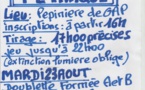 Lieu: Pepiniere de GAP
inscriptions: 3 parties 16H
Tirage: 17H00 précises
jeu jusqu'à 22H00
(extinction lumière oblige)
MARDI 23 AOUT
Doublette Formée A et B